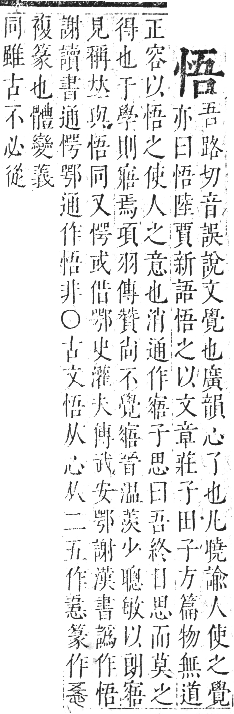 悟
吾路切音誤說文覺也廣韻心了也凡曉諭人使之覺
亦曰悟陸賈新語悟之以文章莊子田子方篇物無道
正容以悟之使人之意也消通作寤子思曰吾終日思而莫之
得也于學則寤焉項羽傳贊尚不覺寤晉溫羨少聰敏以朗寤
見稱𠀤與悟同又愕或借鄂史灌夫傳武安鄂謝漢書譌作悟
謝讀書通愕鄂通作悟非○古文悟从心从二五作㦖篆作
複篆也體變義
同雖古不必從